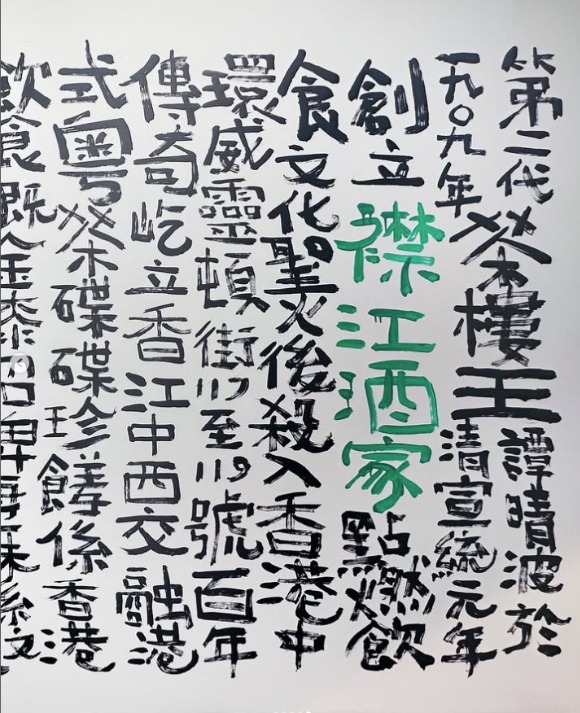 第二代茶樓王譚晴波於
一九〇九年清宣統元年
創立襟江酒家點燃飲
食文化聖火後殺入香港中
環威靈頓街117至119號百年
傳奇屹立香江中西交融港
式粵茶碟碟珍饈係香港
飲食既金漆